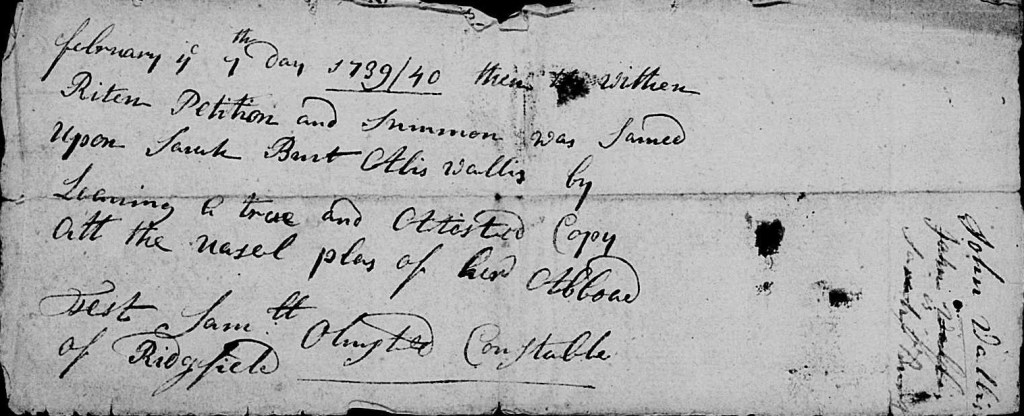 february ye 7th day 1739/40 then the withen
Riten Petition and Summon was Sarved
Upon Sarah Burt Alis Wallis by
Leaving a true and Attested Copy
Att the uasel plas of her Abboad
Test Samll Olmsted Constable
of Ridgfield
John Wallis
John